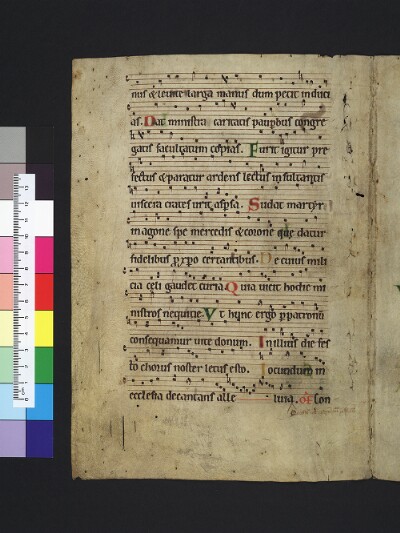 nis & leuite larga manus dum petit induci
as. Dat ministra caritatis pauperibus congre
gatis facultatum copias. Furit igitur pre
fectus & paratur ardens lectus insultantis
uiscera crates urit aspera. Sudat martyr
in agone spe mercedis & corone que datur
fidelibus pro certantibus. De cuius mili
cia celi gaudet curia Quia uicit hodie mi
nistros nequicie. Vt hunc ergo patronum
consequamur uite donum. In illius die fes
to chorus noster letus esto. Iocundum in
ecclesia decantans alle luia. Of Con